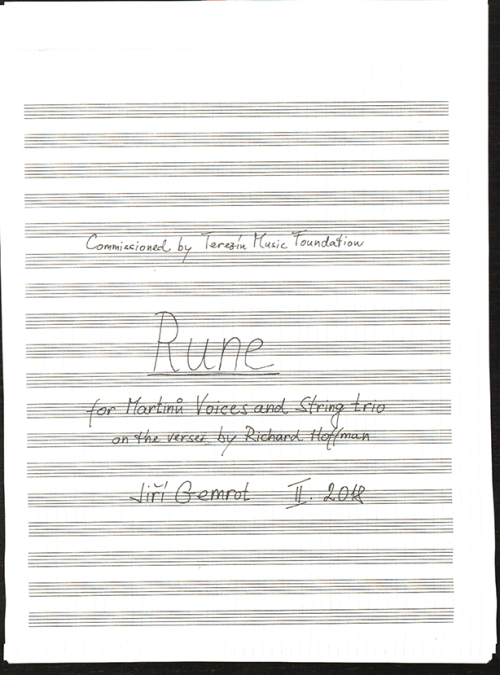 Commissioned by Terezín Music Foundation
Rune
for Martinů Voices and String trio
on the verses by Richard Hoffman
Jiří Gemrot II. 2018